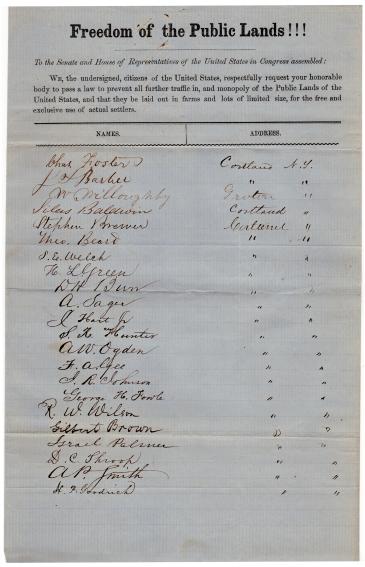 Freedom of the Public Lands!!!
To the Senate and House of Representatives of the United States in Congress assembled:
WE, the undersigned, citizens of the United States, respectfully request your honorable
body to pass a law to prevent all further traffic in, and monopoly of the Public Lands of the
United States, and that they be laid out in farms and lots of limited size, for the free and
exclusive use of actual settlers.
NAMES. ADDRESS.
Chas Foster Cortland N.Y.
Barber " "
W Willoughby Groton "
Silas Baldwin Cortland "
Stephen Brewer "
Theo. Beard " "
Welch " "
H. L. Green " "
" "
A. Sager " "
J Hart Jr " "
S. K. Hunter " "
A W. Ogden " "
F. " "
S. R. Johnson " "
George H. Fowle " "
R. W. Wilson " "
Gilbert Brown " "
Israel Palmer " "
D. C. Throop " "
A P. Smith " "
Goodrich " "